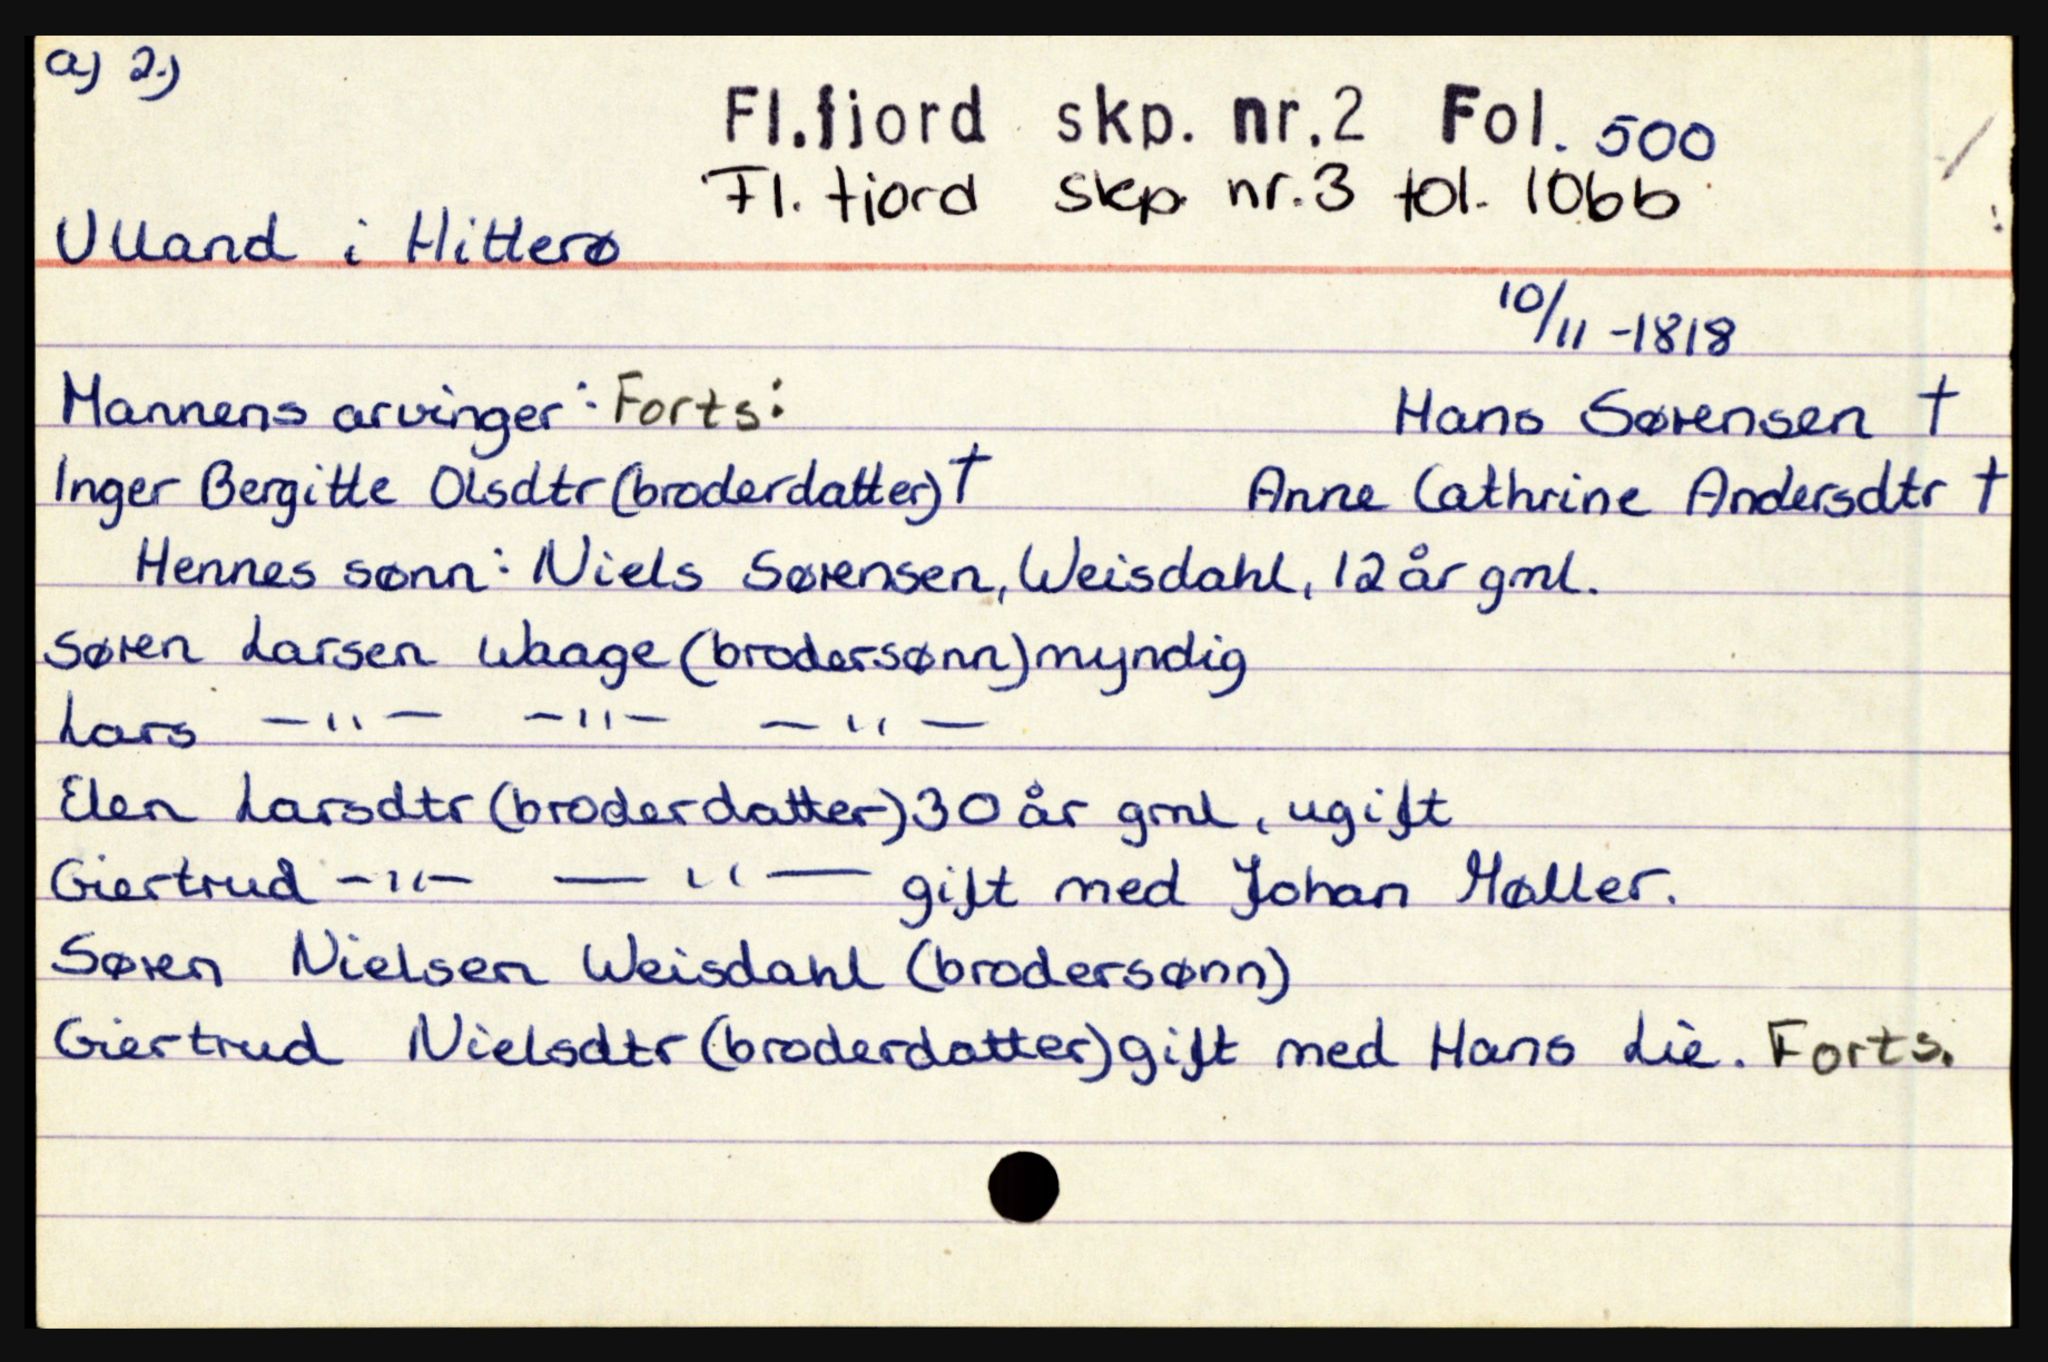 a) 2.)
Fl.fjord skp. nr.2 Fol. 500
Fl. fjord skp. nr.3 fol. 106b
Ulland i Hitterø
10/11 -1818
Mannens arvinger: Forts:
Hans Sørensen †
Inger Bergitte Olsdtr (broderdatter) †
Anne Cathrine Andersdtr †
Hennes sønn: Niels Sørensen, Weisdahl, 12 år gml.
Søren Larsen Waage (brodersønn) myndig
Lars -"- -"- -"-
Elen Larsdtr (broderdatter) 30 år gml, ugift
Giertrud -"- -"- gift med Johan Møller.
Søren Nielsen Weisdahl (brodersønn)
Giertrud Nielsdtr (broderdatter) gift med Hans Liè. Forts.